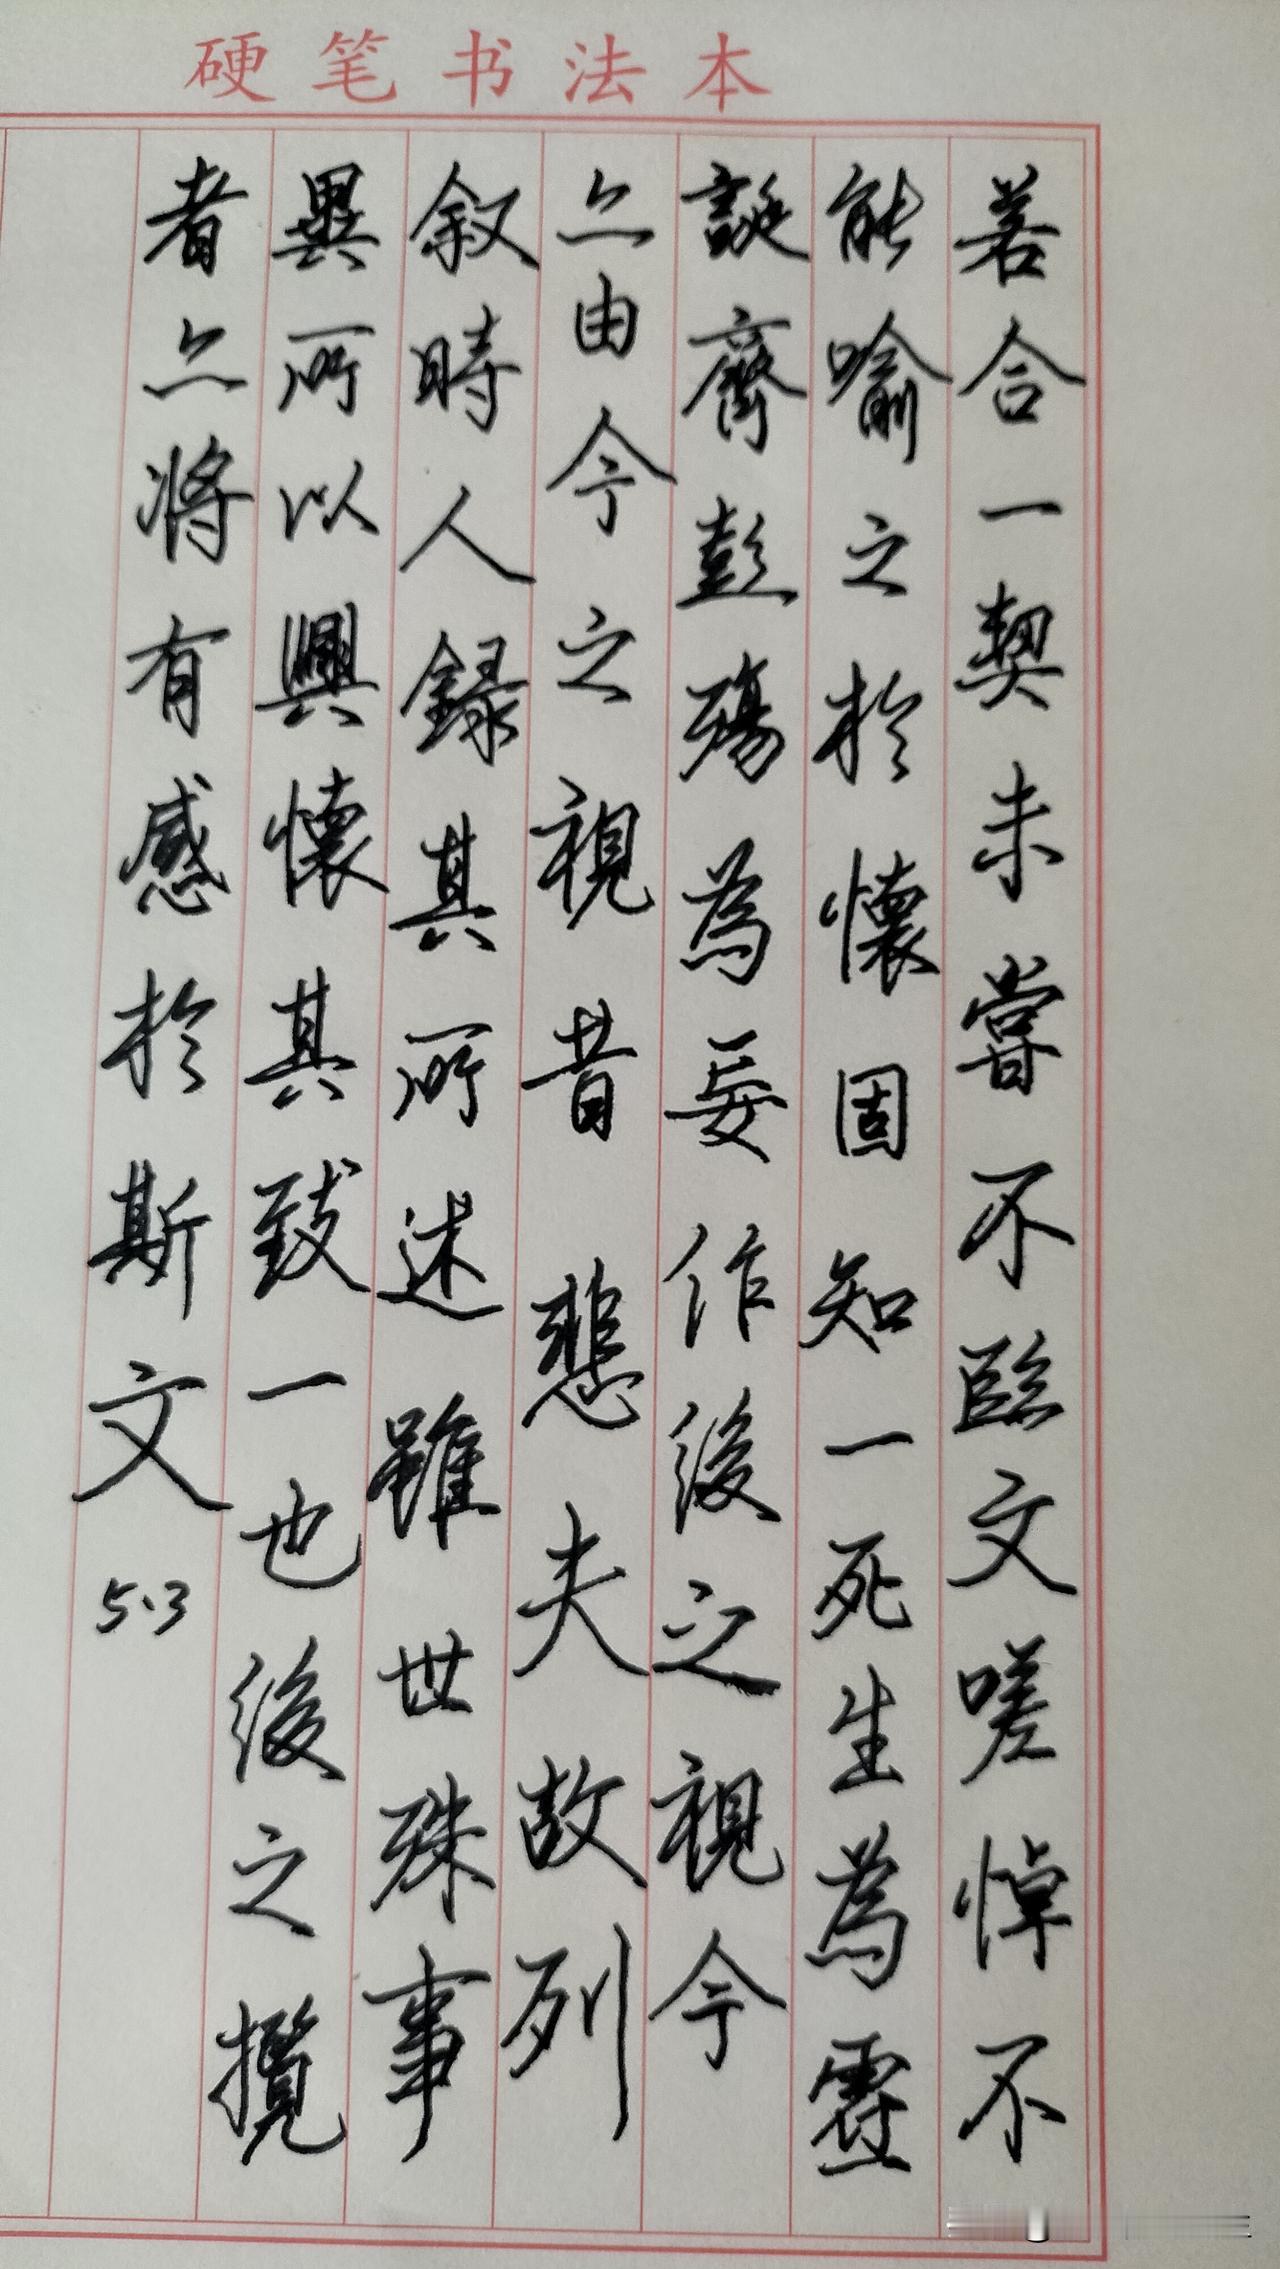 硬笔书法本
若合一契未嘗不臨文嗟悼不
能喻之於懷固知一死生為虛
誕齊彭殤為妄作後之視今
亦由今之視昔悲夫故列
叙時人錄其所述雖世殊事
異所以興懷其致一也後之攬
者亦將有感於斯文
5.3